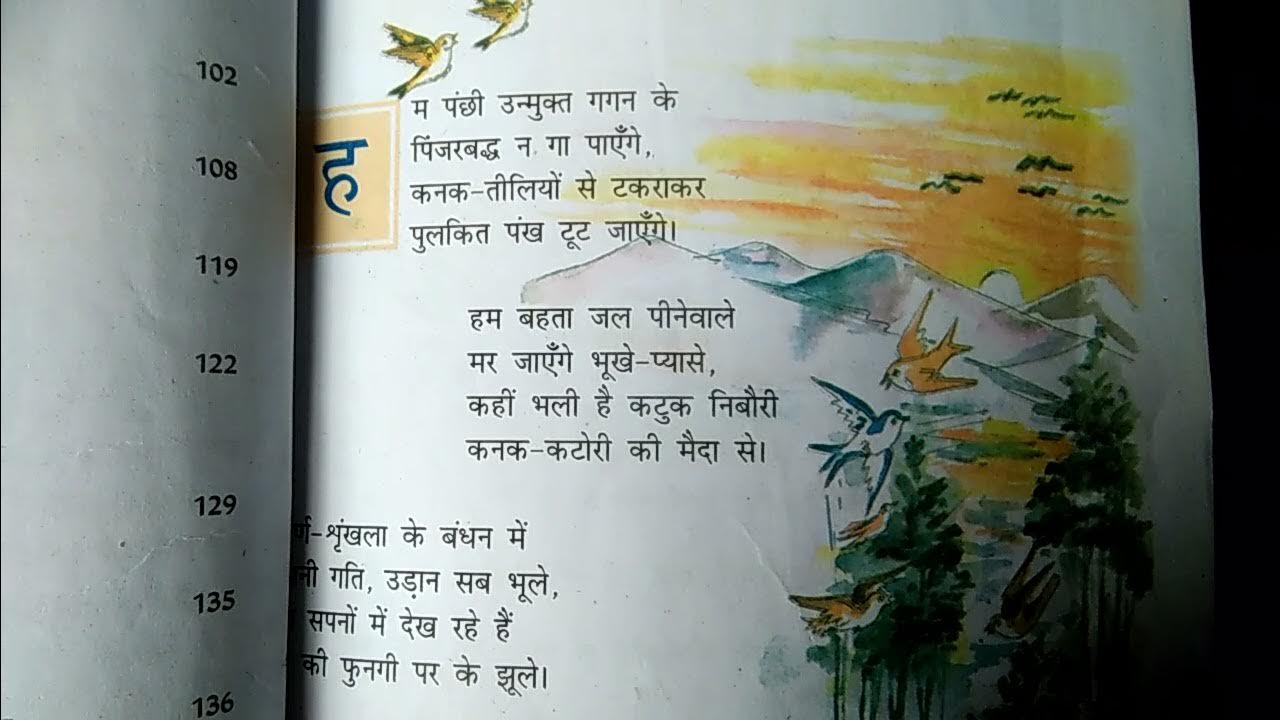 102
108
119
122
129
135
136
हम पंछी उन्मुक्त गगन के
पिंजरबद्ध न गा पाएँगे,
कनक-तीलियों से टकराकर
पुलकित पंख टूट जाएँगे।
हम बहता जल पीनेवाले
मर जाएँगे भूखे-प्यासे,
कहीं भली है कटुक निबौरी
कनक-कटोरी की मैदा से।
र्ण-शृंखला के बंधन में
नी गति, उड़ान सब भूले,
सपनों में देख रहे हैं
की फुनगी पर के झूले।